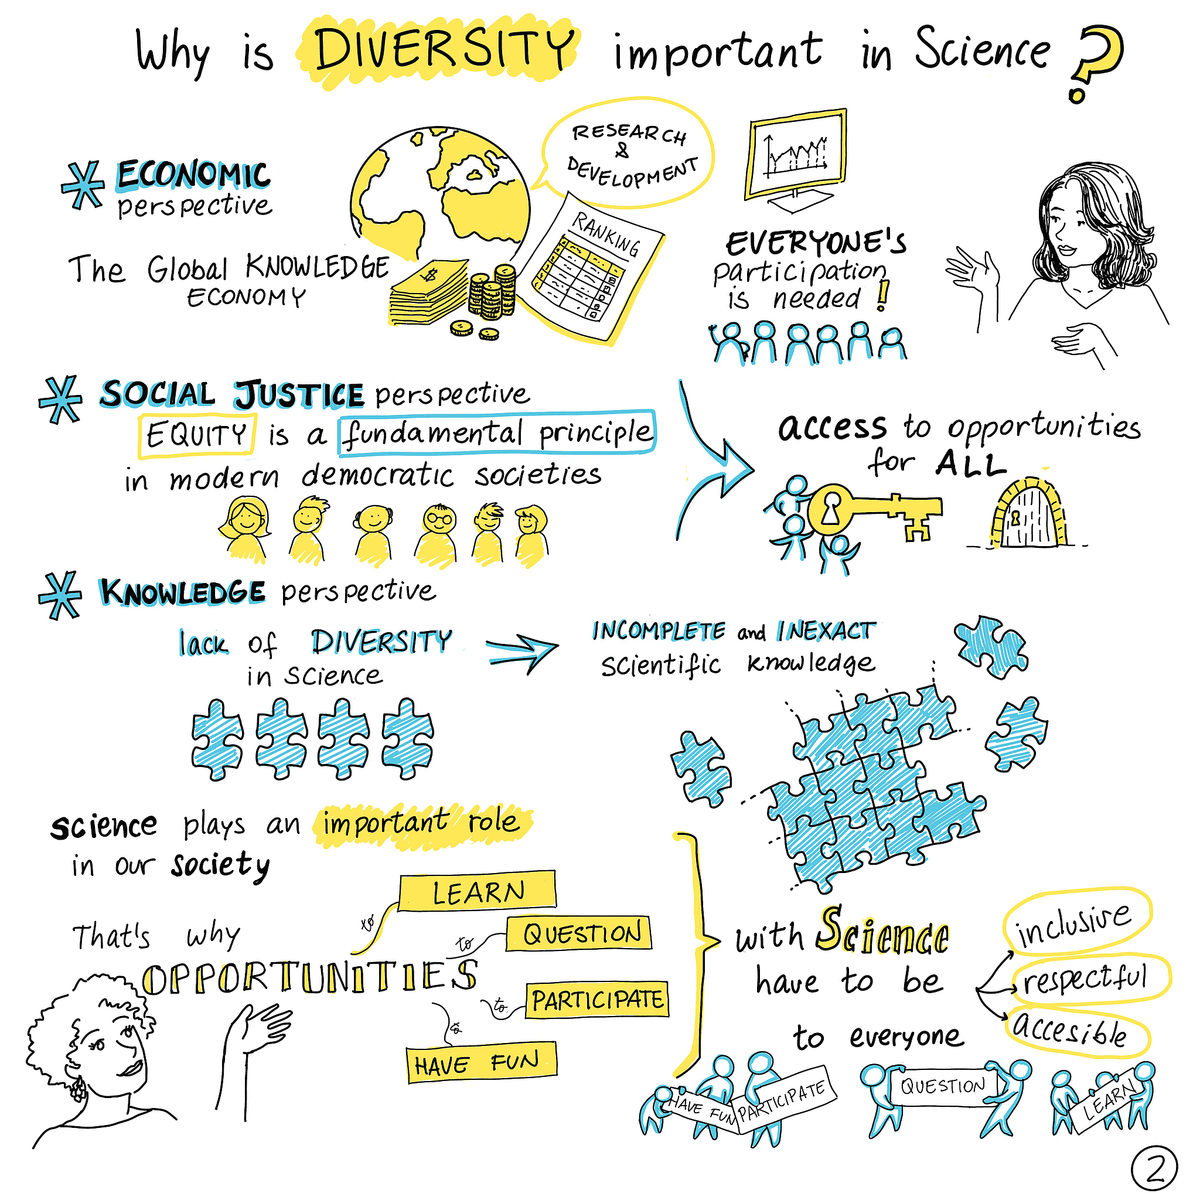 Why is DIVERSITY important in Science?
ECONOMIC
perspective
The Global KNOWLEDGE
ECONOMY
RESEARCH
&
DEVELOPMENT
$
RANKING
EVERYONE'S
participation
is needed!
SOCIAL JUSTICE perspective
EQUITY is a fundamental principle
in modern democratic societies
access to opportunities
for ALL
KNOWLEDGE perspective
lack of DIVERSITY
in science
INCOMPLETE and INEXACT
scientific knowledge
science plays an important role
in our society
That's why
OPPORTUNITIES
to LEARN
to QUESTION
to PARTICIPATE
to HAVE FUN
with Science
have to be
inclusive
respectful
accesible
to everyone
HAVE FUN
PARTICIPATE
QUESTION
LEARN
2